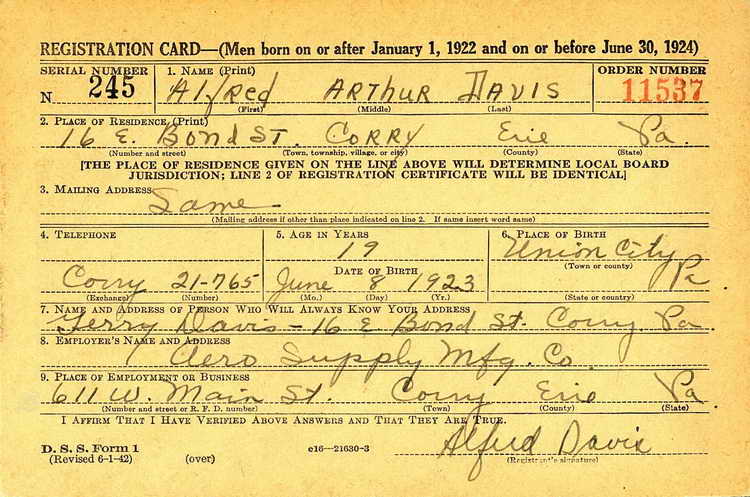 REGISTRATION CARD—(Men born on or after January 1, 1922 and on or before June 30, 1924)
SERIAL NUMBER 1. NAME (Print) ORDER NUMBER
N 245 Alfred ARTHUR DAVIS 11537
(First) (Middle) (Last)
2. PLACE OF RESIDENCE (Print)
16 E. Bond St. CORRY Erie Pa.
(Number and street) (Town, township, village, or city) (County) (State)
[THE PLACE OF RESIDENCE GIVEN ON THE LINE ABOVE WILL DETERMINE LOCAL BOARD
JURISDICTION; LINE 2 OF REGISTRATION CERTIFICATE WILL BE IDENTICAL]
3. MAILING ADDRESS
Same
(Mailing address if other than place indicated on line 2. If same insert word same)
4. TELEPHONE 5. AGE IN YEARS 6. PLACE OF BIRTH
19 Union City
(Town or county)
DATE OF BIRTH
Corry 21-765 June 8 1923 Pa.
(Exchange) (Number) (Mo.) (Day) (Yr.) (State or country)
7. NAME AND ADDRESS OF PERSON WHO WILL ALWAYS KNOW YOUR ADDRESS
Gerry Davis - 16 E Bond St. Corry Pa.
8. EMPLOYER'S NAME AND ADDRESS
Aero Supply Mfg. Co.
9. PLACE OF EMPLOYMENT OR BUSINESS
611 W. Main St. Corry Erie Pa.
(Number and street or R. F. D. number) (Town) (County) (State)
I AFFIRM THAT I HAVE VERIFIED ABOVE ANSWERS AND THAT THEY ARE TRUE.
Alfred Davis
D. S. S. Form 1 c16—21630-3 (Registrant's signature)
(Revised 6-1-42) (over)